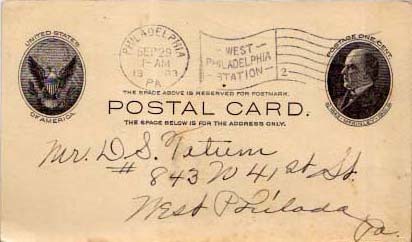 UNITED STATES
OF AMERICA
PHILADELPHIA
SEP 29
1-AM
1903
PA
WEST
PHILADELPHIA
STATION
2
POSTAGE ONE CENT
THE SPACE ABOVE IS RESERVED FOR POSTMARK.
POSTAL CARD.
THE SPACE BELOW IS FOR THE ADDRESS ONLY.
Mr. D. S. Tetum
# 843 N 41 st St.
West Philada
Pa.